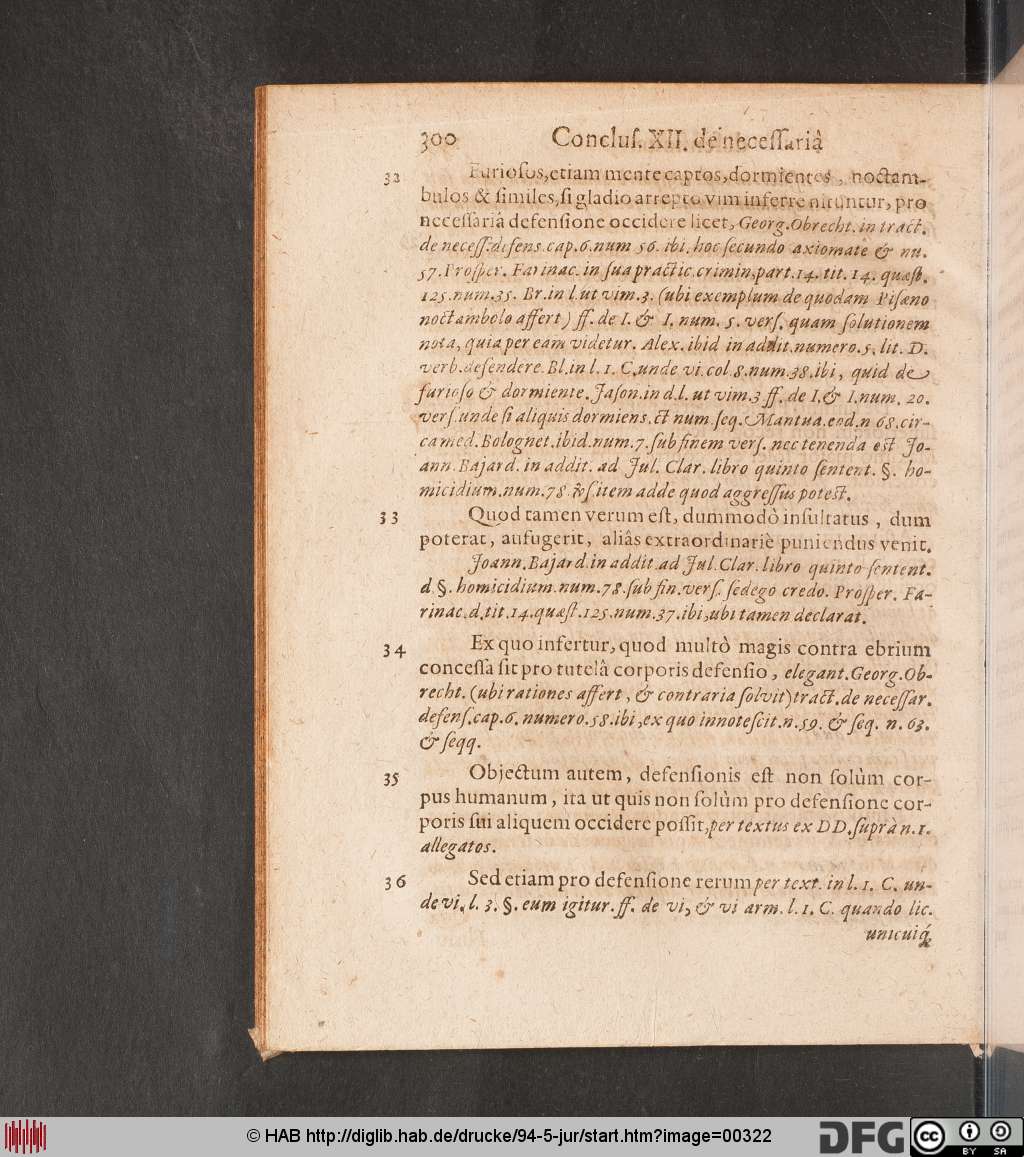 300 Concluſ. XII. de neceſſariâ
32 Furioſos, etiam mente captos, dormientes, noctam-
bulos & ſimiles, ſi gladio arrepto vim inferre nituntur, pro
neceſſariâ defenſione occidere licet, Georg. Obrecht. in tract.
de neceſſ. defens. cap. 6. num 56. ibi, hoc ſecundo axiomate & nu.
57. Proſper. Farinac. in ſua practic. crimin, part. 14. tit. 14. quæſt.
125. num. 35. Br. in l. ut vim. 3. (ubi exemplum de quodam Piſæno
noctambolo affert) ff. de I. & I. num. 5. verſ. quam ſolutionem
nota, quia per eam videtur. Alex. ibid in addit. numero. 5. lit. D.
verb. defendere. Bl. in l. 1. C. unde vi. col. 8. num. 38. ibi, quid de
furioſo & dormiente. Jaſon. in d. l. ut vim. 3 ff. de I. & I. num. 20.
verſ. unde ſi aliquis dormiens. et num ſeq. Mantua. eod. n 68. cir-
ca med. Bolognet. ibid. num. 7. ſub finem verſ. nec tenenda est Jo-
ann. Bajard. in addit. ad Jul. Clar. libro quinto ſentent. §. ho-
micidium. num. 78. ſitem adde quod aggreſſus potest.
33 Quod tamen verum eſt, dummodò inſultatus, dum
poterat, aufugerit, aliâs extraordinariè puniendus venit.
Joann. Bajard. in addit. ad Jul. Clar. libro quinto ſentent.
d. §. homicidium. num. 78. ſub fin. verſ. ſed ego credo. Proſper. Fa-
rinac. d. tit. 14. quæſt. 125. num. 37. ibi, ubi tamen declarat.
34 Ex quo infertur, quod multò magis contra ebrium
conceſſa ſit pro tutelâ corporis defenſio, elegant. Georg. Ob-
recht. (ubi rationes affert, & contraria ſolvit) tract. de neceſſar.
defenſ. cap. 6. numero. 58. ibi, ex quo innoteſcit. n. 59. & ſeq. n. 63.
& ſeqq.
35 Objectum autem, defenſionis eſt non ſolùm cor-
pus humanum, ita ut quis non ſolùm pro defenſione cor-
poris ſui aliquem occidere poſſit, per textus ex DD. ſuprà n. 1.
allegatos.
36 Sed etiam pro defenſione rerum per text. in l. 1. C. un-
de vi, l. 3. §. eum igitur. ff. de vi, & vi arm. l. 1. C. quando lic.
unicuiq́;
© HAB http://diglib.hab.de/drucke/94-5-jur/start.htm?image=00322
DFG
cc BY SA